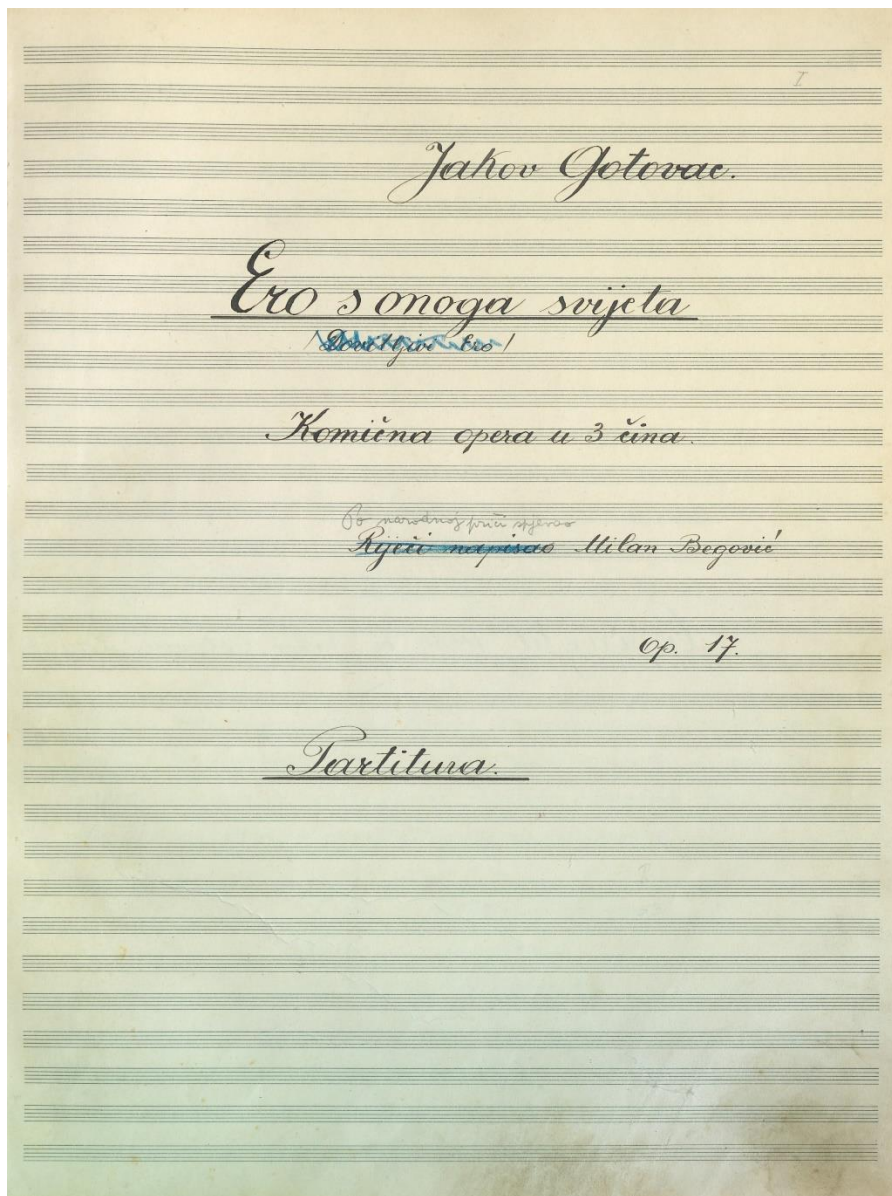 I
Jakov Gotovac.
Ero s onoga svijeta
/Dovitljivi Ero/
Komična opera u 3 čina.
Po narodnoj priči spjevao
Riječi napisao Milan Begović
Op. 17.
Partitura.